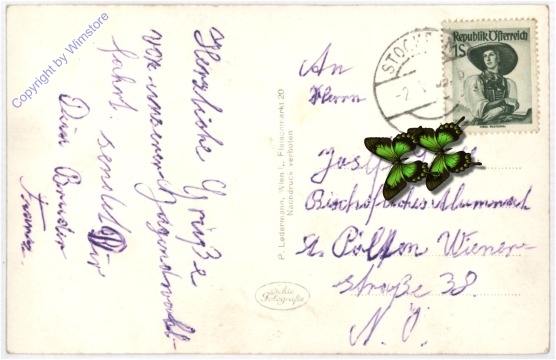 Copyright by Wimstore
Herzliche Grüße
von unserer Jugendwall-
fahrt. sendet Dir
Dein Bruder
Franz.
P. Ledermann, Wien I., Fleischmarkt 20
Nachdruck verboten
Echte
Fotografie
STOCK
Republik Österreich
1S
An
Herrn
Josef
Bischöfliches Alumnat
St. Pölten Wiener-
straße 38.
N. Ö.